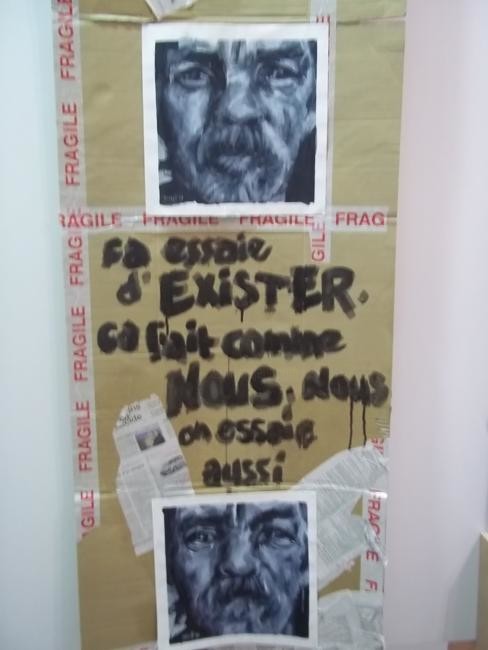 FRAGILE
FRAGILE
AGILE FRAGILE FRAGILE FRAG
FRAGILE
FRAGILE
FRAGILE
GILE
GILE
FRAGILE
ça essaie
d'EXiSTER.
ça fait comme
NOUS, NOUS
on essaie
aussi